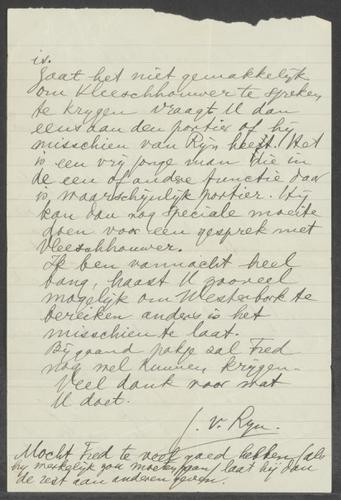 is.
Gaat het niet gemakkelijk
om Vleeschhouwer te spreken
te krijgen vraagt U dan
eens aan den portier of hij
misschien van Rijn heeft. Het
is een vrij jonge man die in
de een of andere functie daar
is, waarschijnlijk portier. Hij
kan dan nog speciale moeite
doen voor een gesprek met
Vleeschhouwer.
Ik ben vannacht heel
bang, haast U zooveel
mogelijk om Westerbork te
bereiken anders is het
misschien te laat.
Bijgaand pakje zal Fred
nog wel kunnen krijgen.
Veel dank voor wat
U doet.
J. v. Ryn.
Mocht Fred te veel goed hebben (als
hij werkelijk zou moeten gaan) laat hij dan
de rest aan anderen geven.